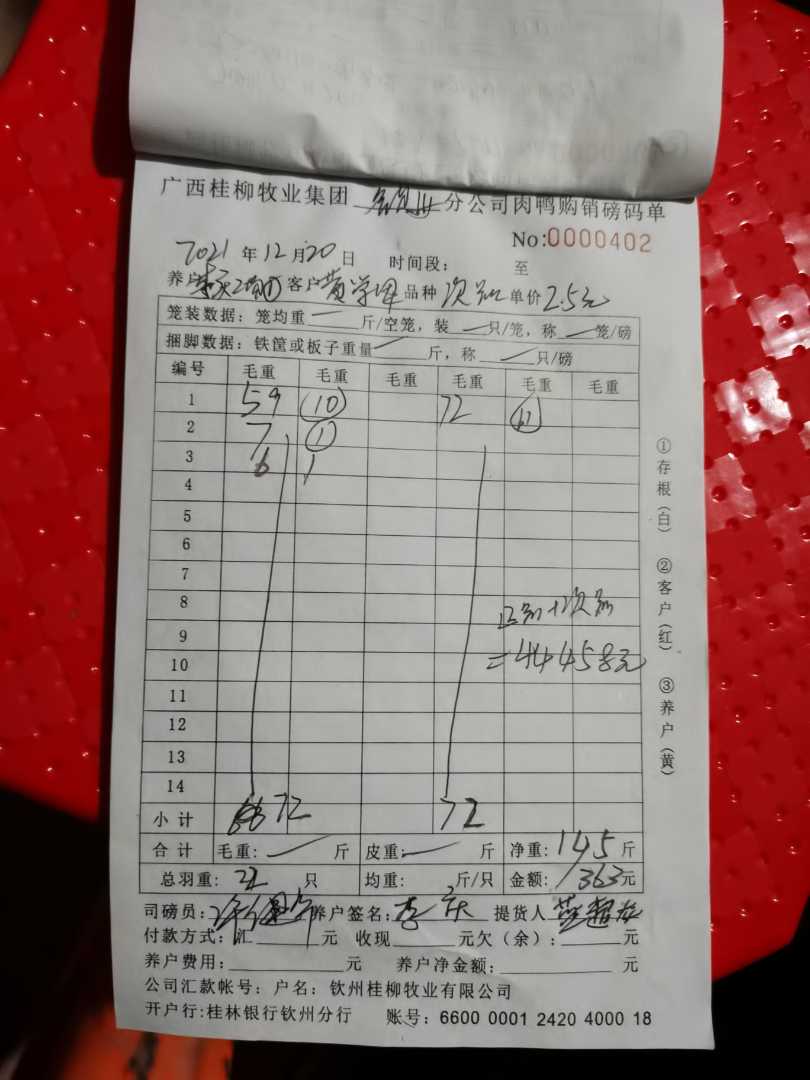 广西桂柳牧业集团 钦州 分公司肉鸭购销磅码单
No:0000402
2021 年 12 月 20 日 时间段: 至
养户 客户 黄学坤 品种 次品 单价 2.5元
笼装数据: 笼均重 — 斤/空笼, 装 — 只/笼, 称 — 笼/磅
捆脚数据: 铁筐或板子重量 — 斤, 称 — 只/磅
编号 毛重 毛重 毛重 毛重 毛重 毛重
1 59 (10) 72
2 7 (1)
3 6 1
4
5
6
7
8
9
10
11
12
13
14
=44458元
小计 72 72
合计 毛重: — 斤 皮重: — 斤 净重: 145 斤
总羽重: 只 均重: 斤/只 金额: 363元
司磅员: 养户签名: 提货人
付款方式: 汇 元 收现 元欠(余): 元
养户费用: 元 养户净金额: 元
公司汇款帐号: 户名: 钦州桂柳牧业有限公司
开户行:桂林银行钦州分行 账号: 6600 0001 2420 4000 18
①存根(白) ②客户(红) ③养户(黄)